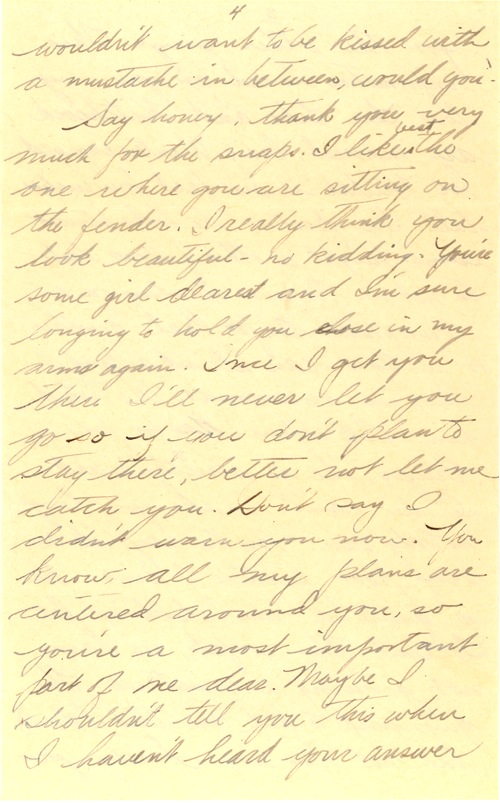 4
wouldn't want to be kissed with
a mustache in between, would you.
Say honey, thank you very
much for the snaps. I like best the
one where you are sitting on
the fender. I really think you
look beautiful - no kidding. You're
some girl dearest and I'm sure
longing to hold you close in my
arms again. Once I get you
there I'll never let you
go so if you don't plan to
stay there, better not let me
catch you. Don't say I
didn't warn you now. You
know, all my plans are
centered around you, so
you're a most important
part of me dear. Maybe I
shouldn't tell you this when
I haven't heard your answer